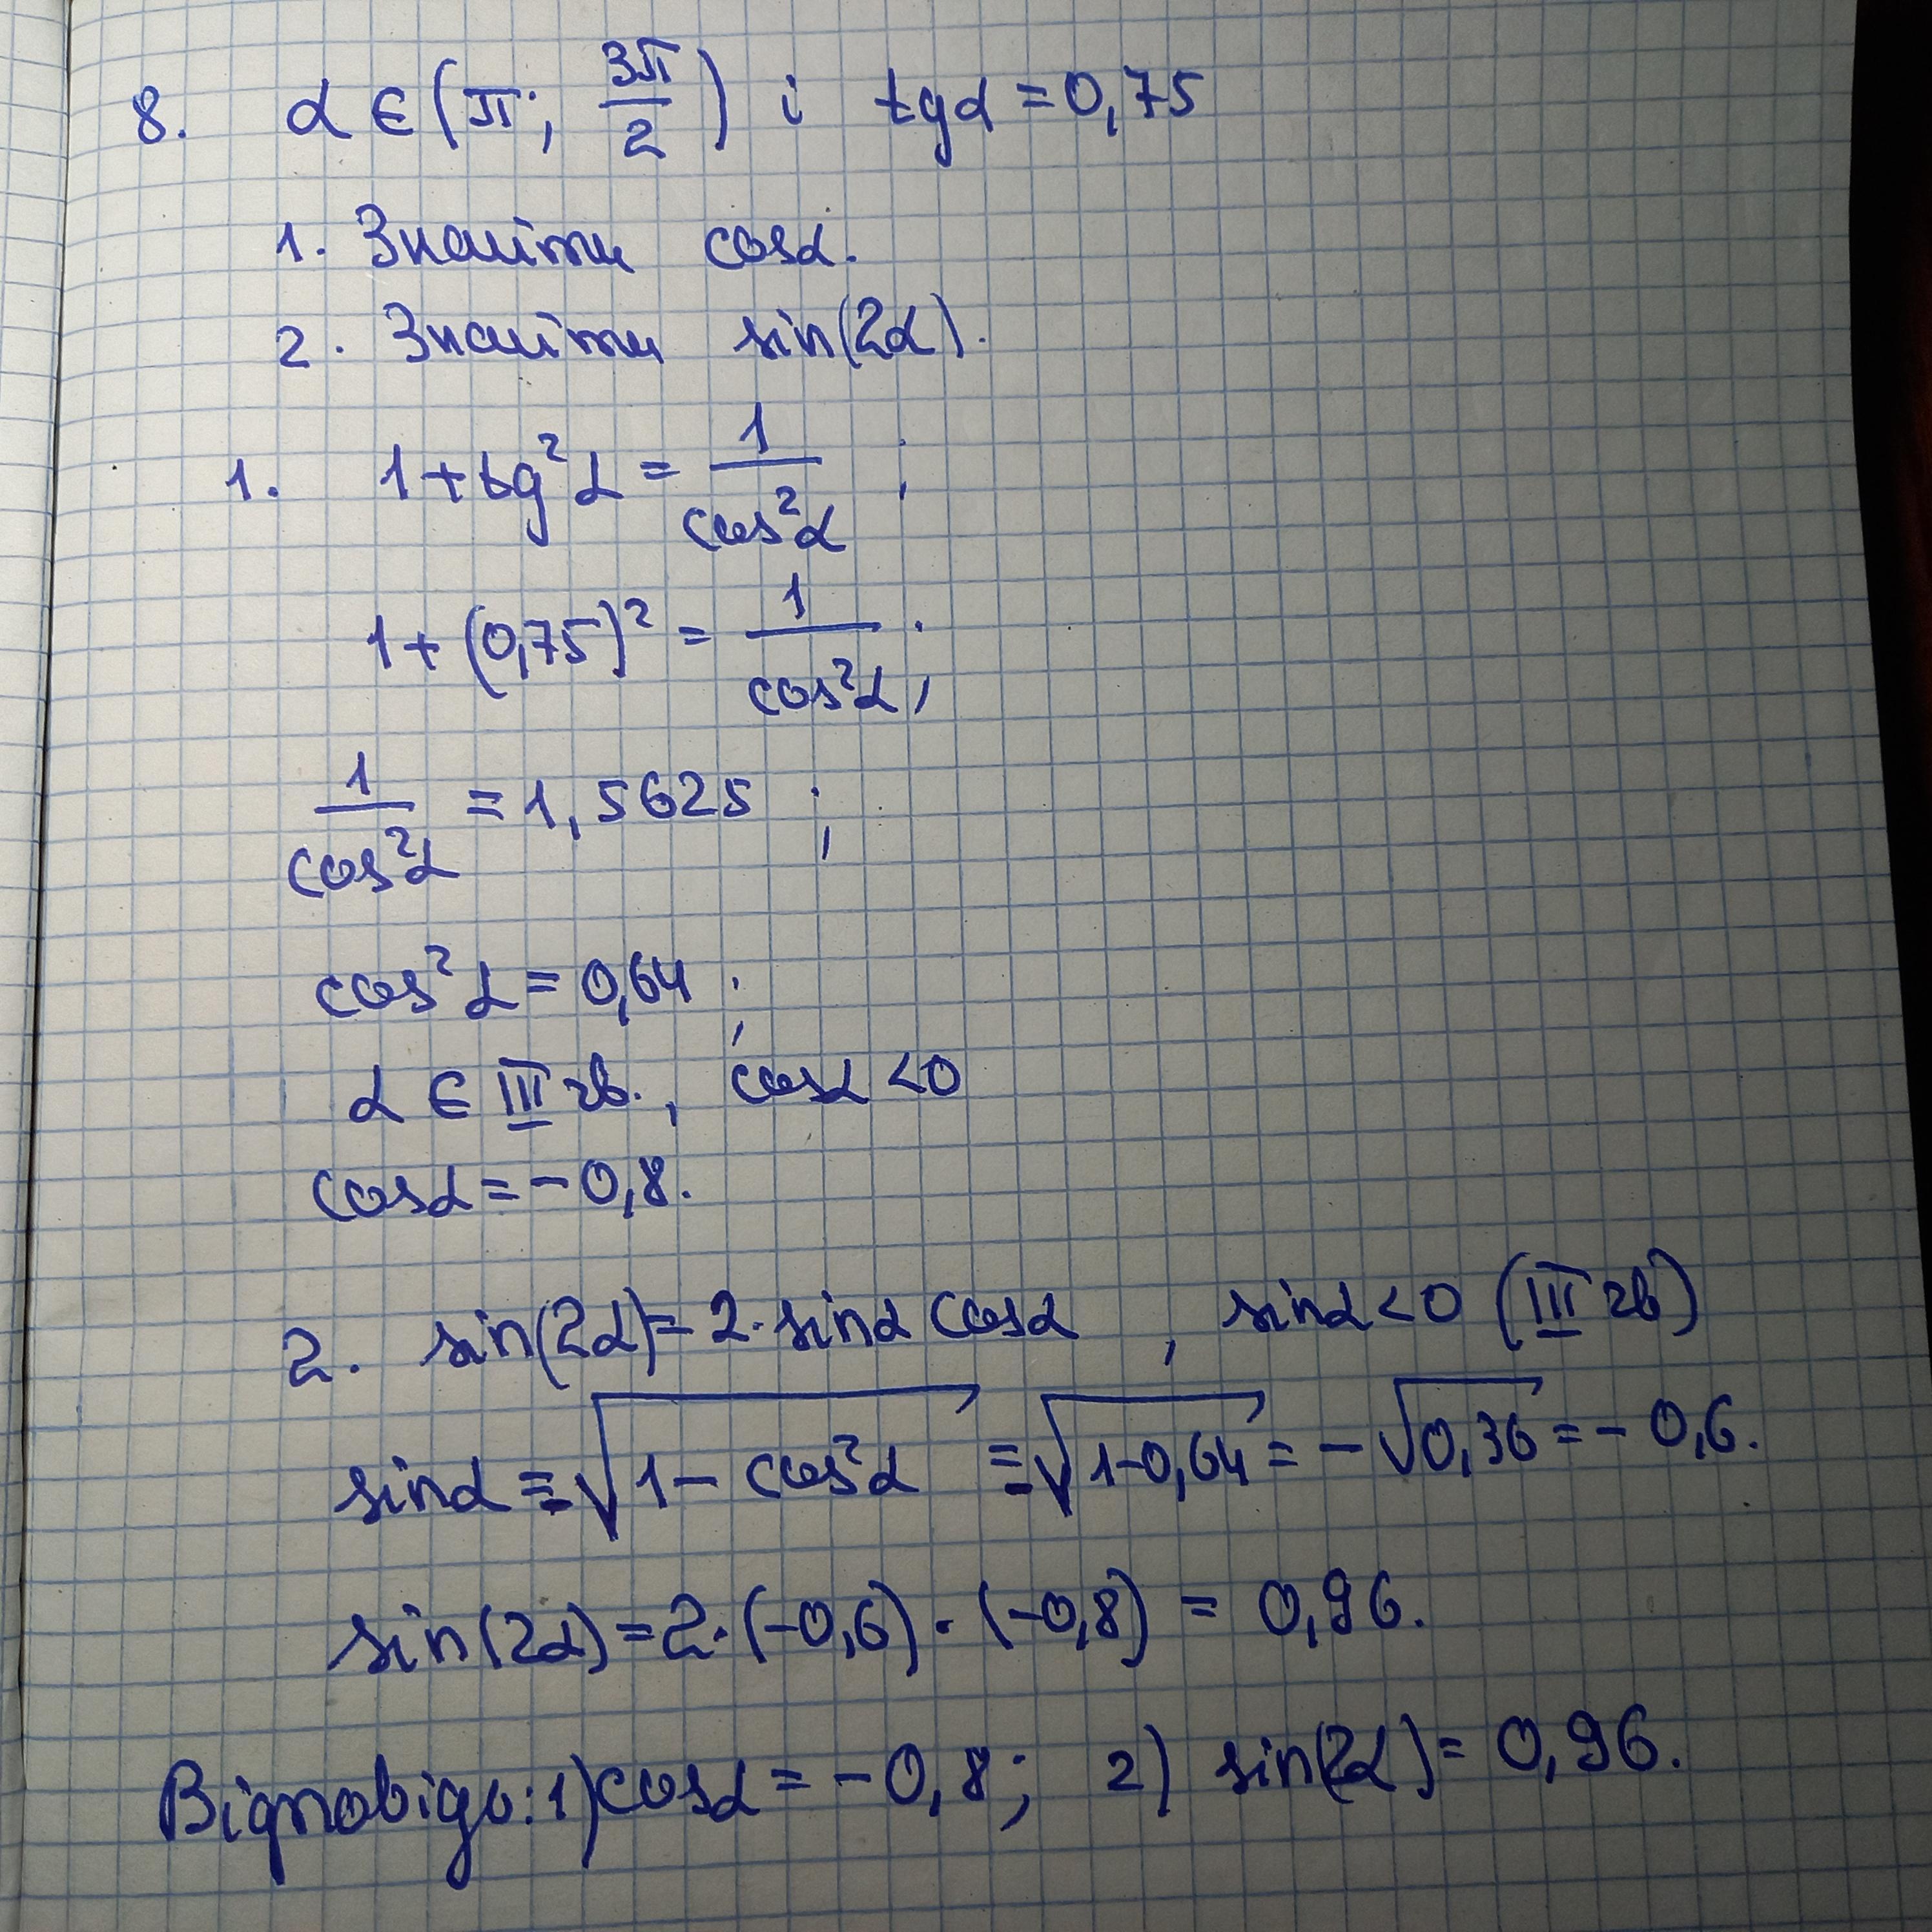 8. α ∈ (π; 3π/2) і tgα = 0,75
1. Знайти cosα.
2. Знайти sin(2α).
1. 1 + tg²α = 1/cos²α ;
1 + (0,75)² = 1/cos²α ;
1/cos²α = 1,5625 ;
cos²α = 0,64 ;
α ∈ III чв. , cosα < 0
cosα = -0,8.
2. sin(2α) = 2·sinα cosα , sinα < 0 (III чв)
sinα = -√(1 - cos²α) = -√(1-0,64) = -√0,36 = -0,6.
sin(2α) = 2·(-0,6)·(-0,8) = 0,96.
Відповідь: 1) cosα = -0,8; 2) sin(2α) = 0,96.